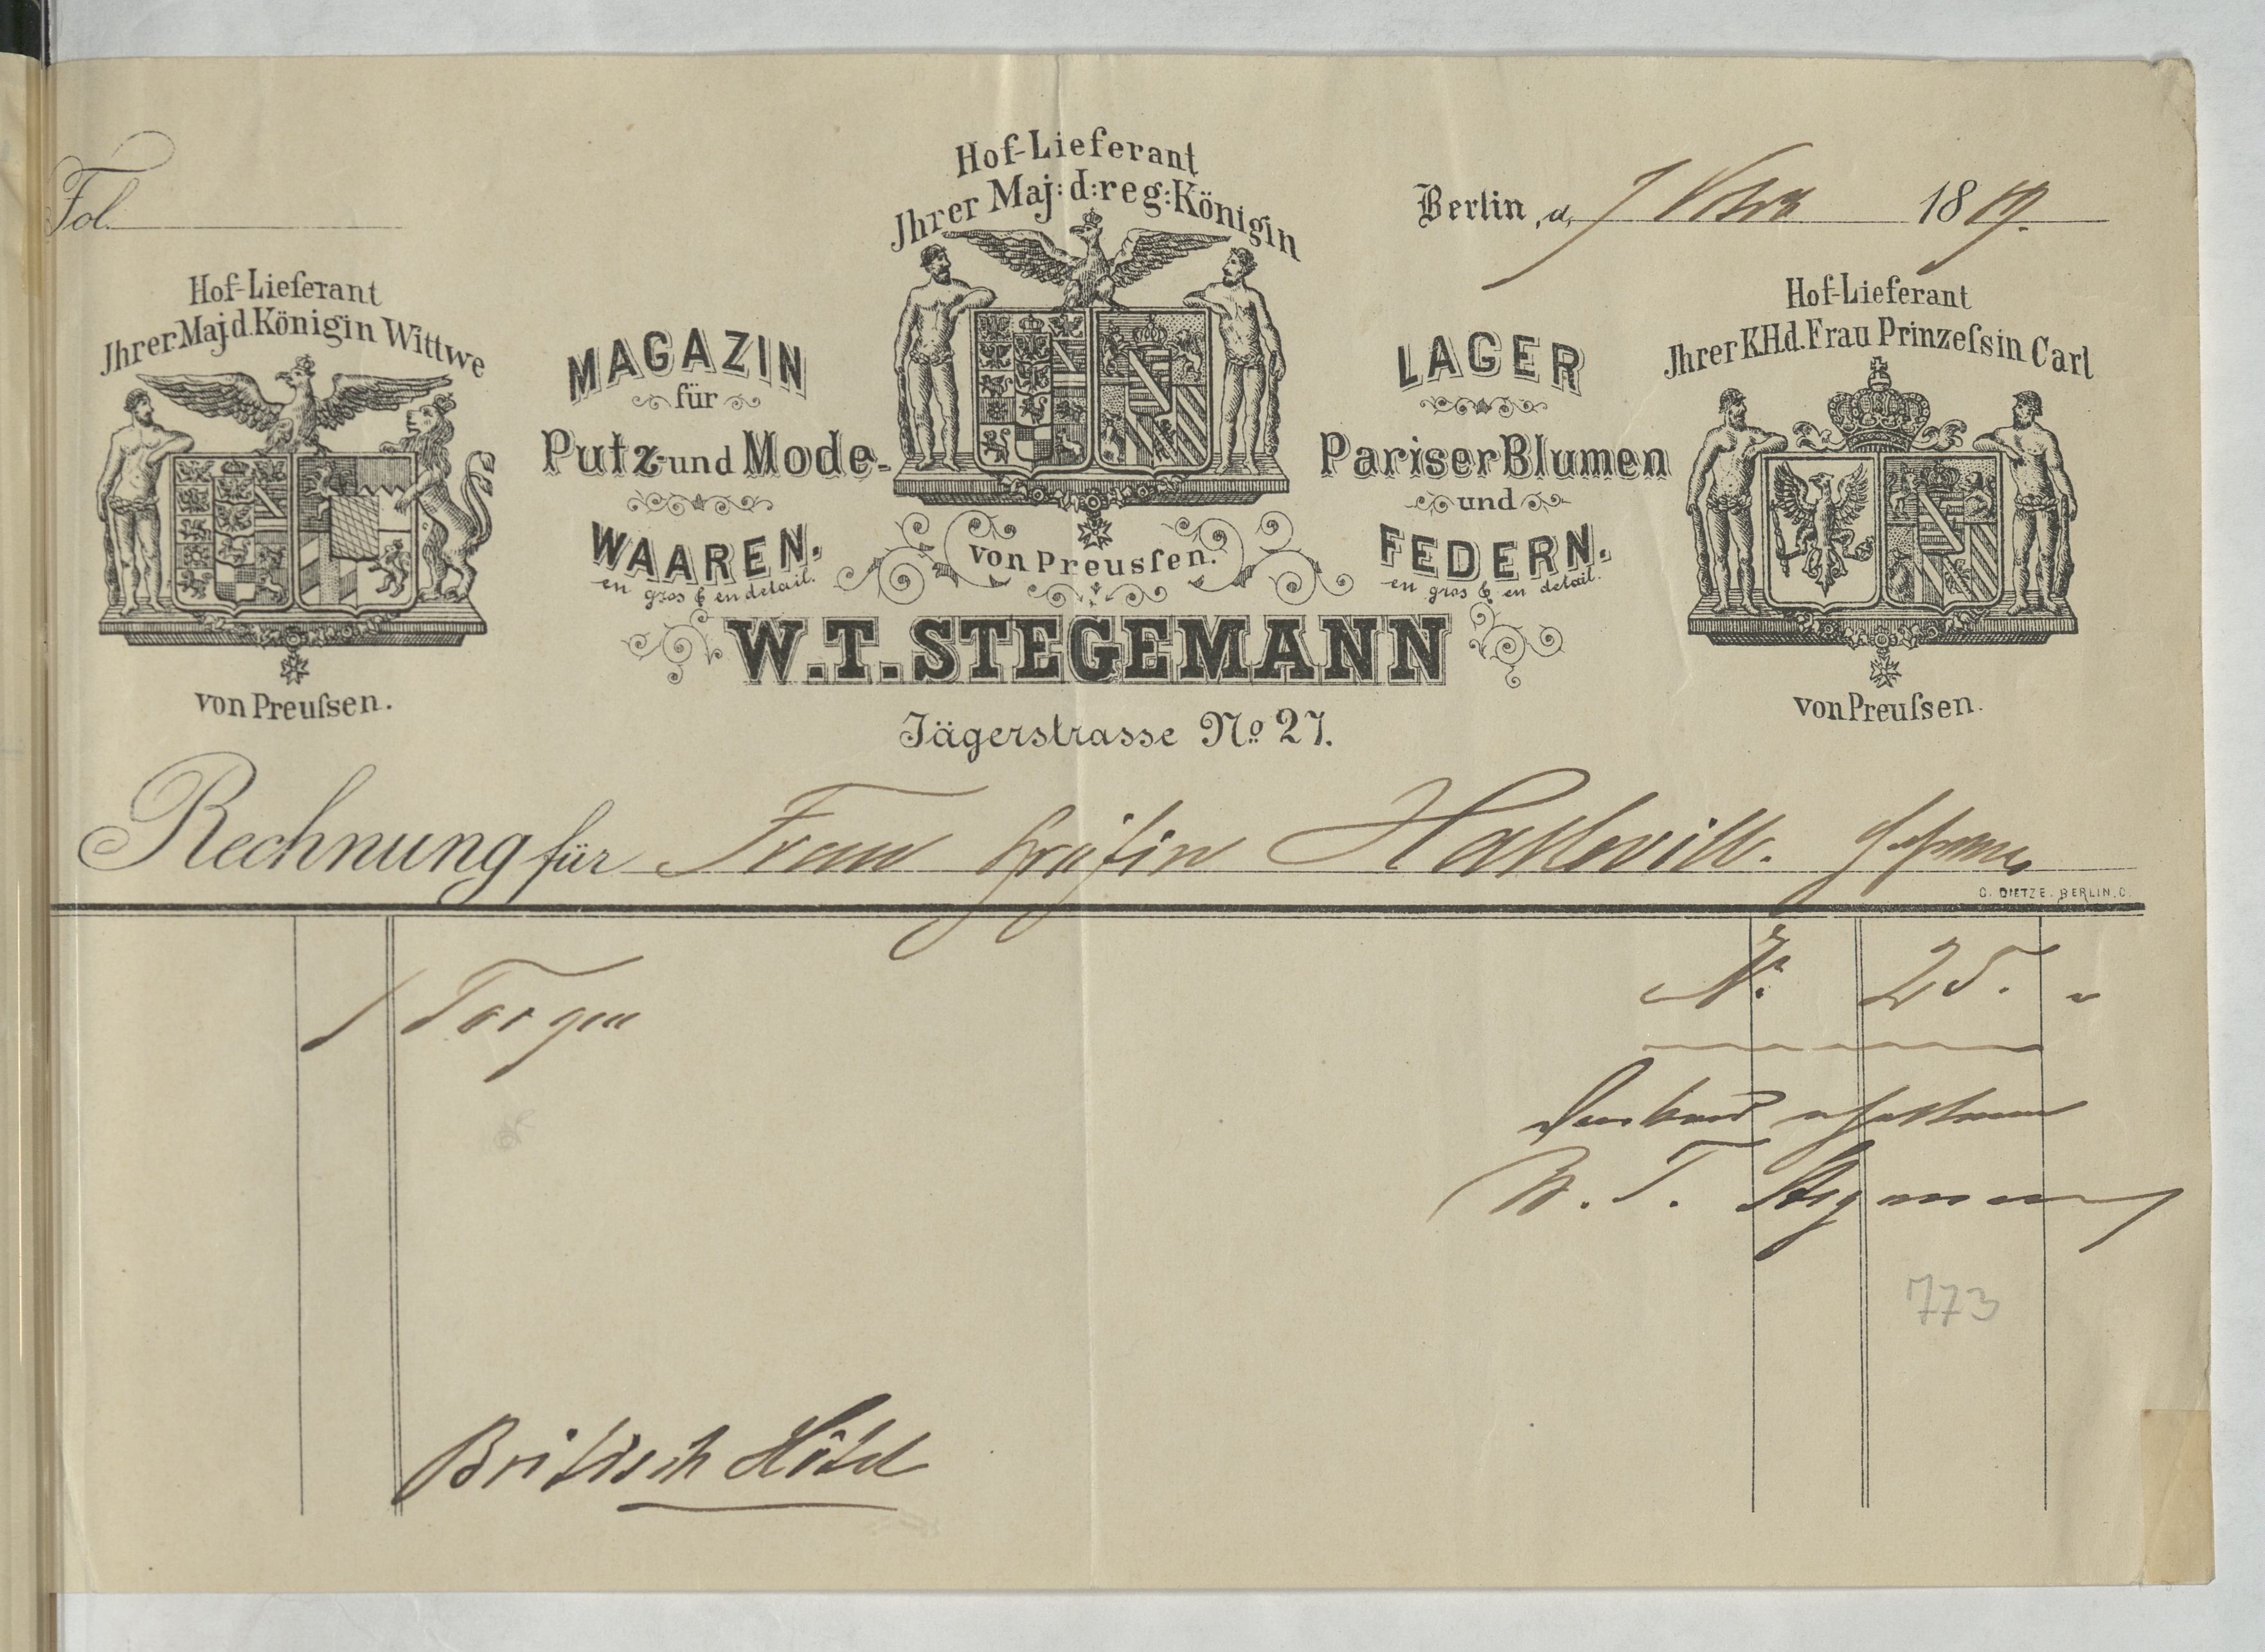 Fol.
Hof-Lieferant
Ihrer Maj: d: reg: Königin
von Preussen.
Berlin, d. 7 1869.
Hof-Lieferant
Ihrer Maj. d. Königin Wittwe
von Preussen.
MAGAZIN
für
Putz- und Mode-
WAAREN.
en gros & en detail.
LAGER
Pariser Blumen
und
FEDERN.
en gros & en detail.
Hof-Lieferant
Ihrer K.H.d. Frau Prinzessin Carl
von Preussen.
W. T. STEGEMANN
Jägerstrasse No 27.
Rechnung für Frau Gräfin
C. DIETZE. BERLIN. C.
1 25. "
W. T. Stegemann
773
Britisch Hôtel